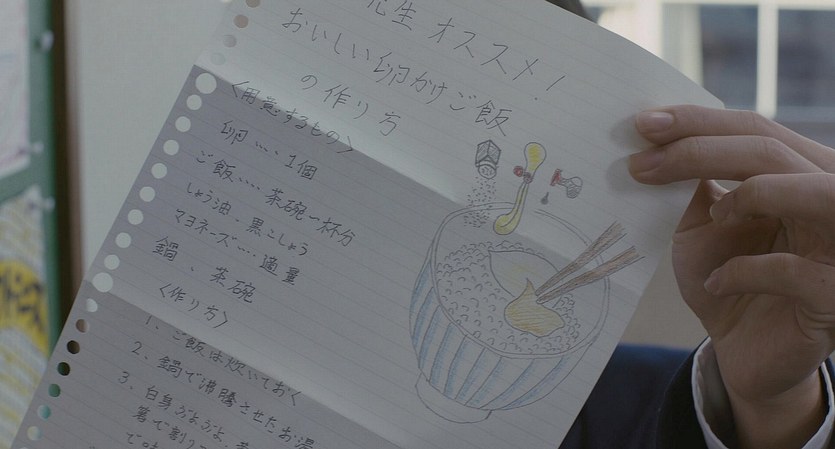 先生 オススメ!
おいしい卵かけご飯
の作り方
〈用意するもの〉
卵 … 1個
ご飯 … 茶碗一杯分
しょう油、黒こしょう
マヨネーズ … 適量
鍋、茶碗
〈作り方〉
1. ご飯は炊いておく
2. 鍋で沸騰させたお湯
3. 白身ぷよぷよ、
箸で割り